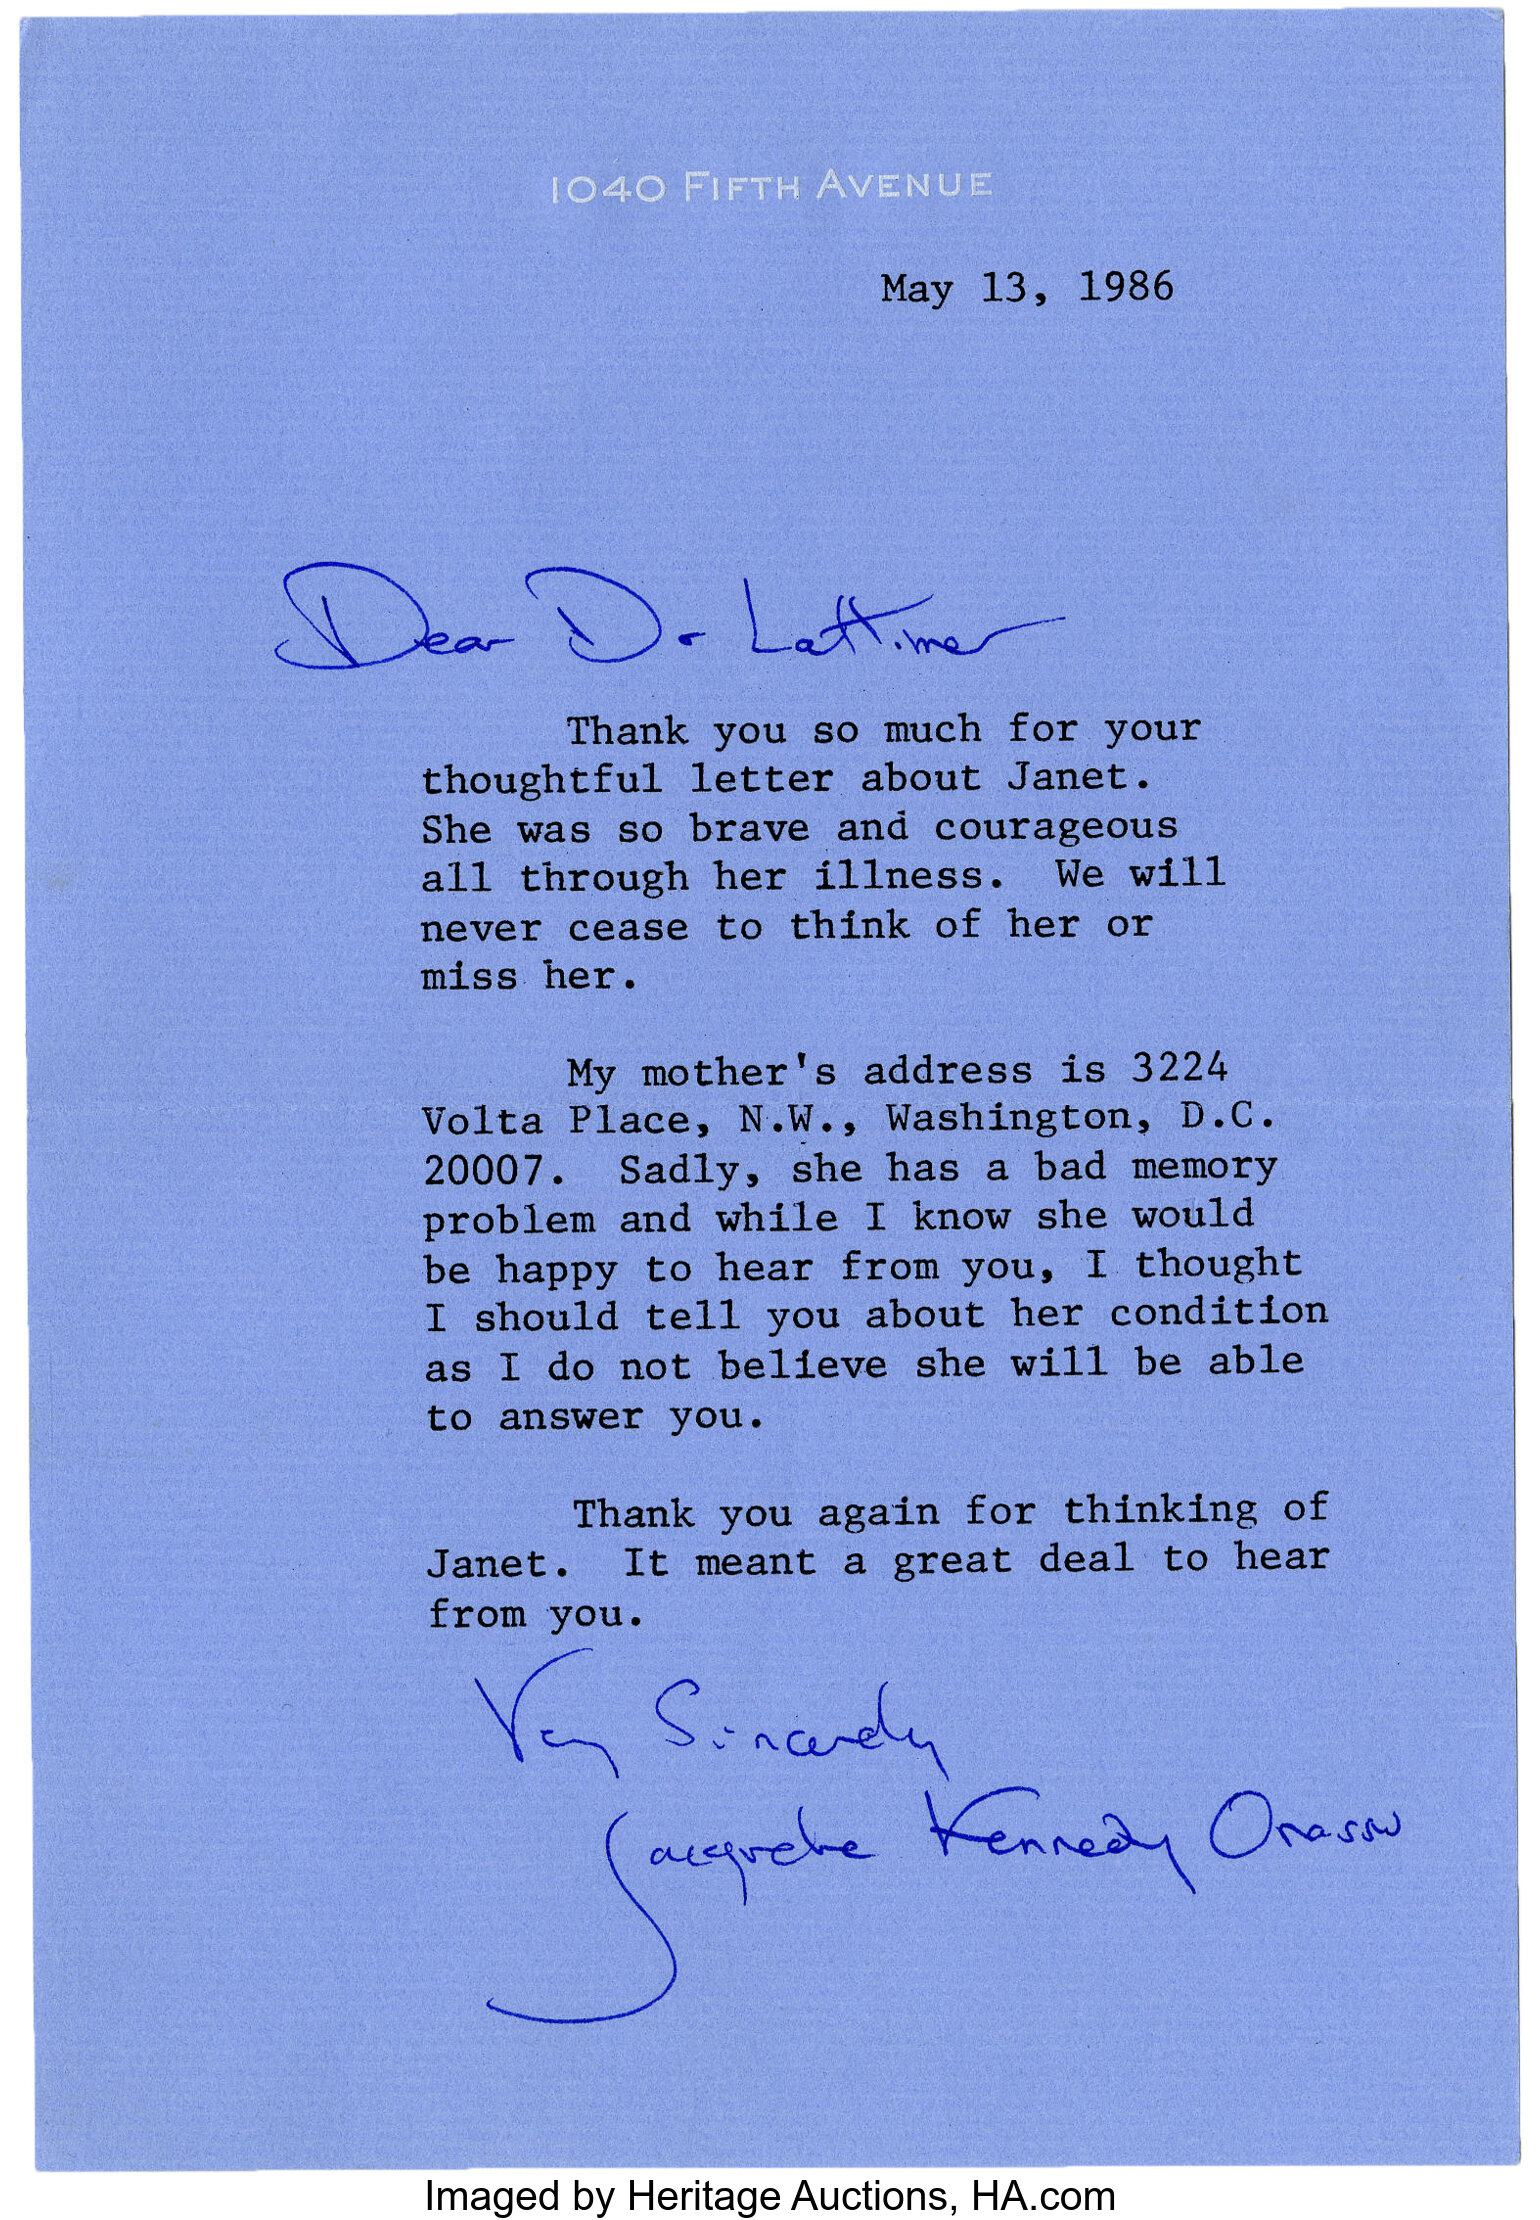 1040 FIFTH AVENUE
May 13, 1986
Dear Dr Lattimer
Thank you so much for your
thoughtful letter about Janet.
She was so brave and courageous
all through her illness. We will
never cease to think of her or
miss her.
My mother's address is 3224
Volta Place, N.W., Washington, D.C.
20007. Sadly, she has a bad memory
problem and while I know she would
be happy to hear from you, I thought
I should tell you about her condition
as I do not believe she will be able
to answer you.
Thank you again for thinking of
Janet. It meant a great deal to hear
from you.
Very Sincerely
Jacqueline Kennedy Onassis
Imaged by Heritage Auctions, HA.com